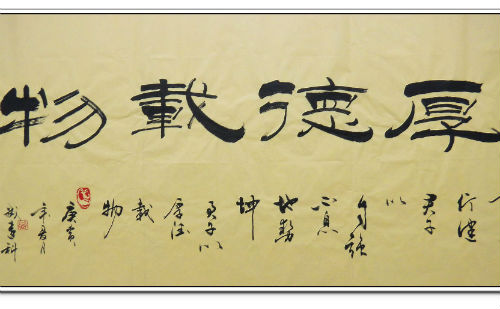 厚德載物
行健
君子
以
自強
不息
地勢
坤
君子以
厚德
載
物
庚寅
年月